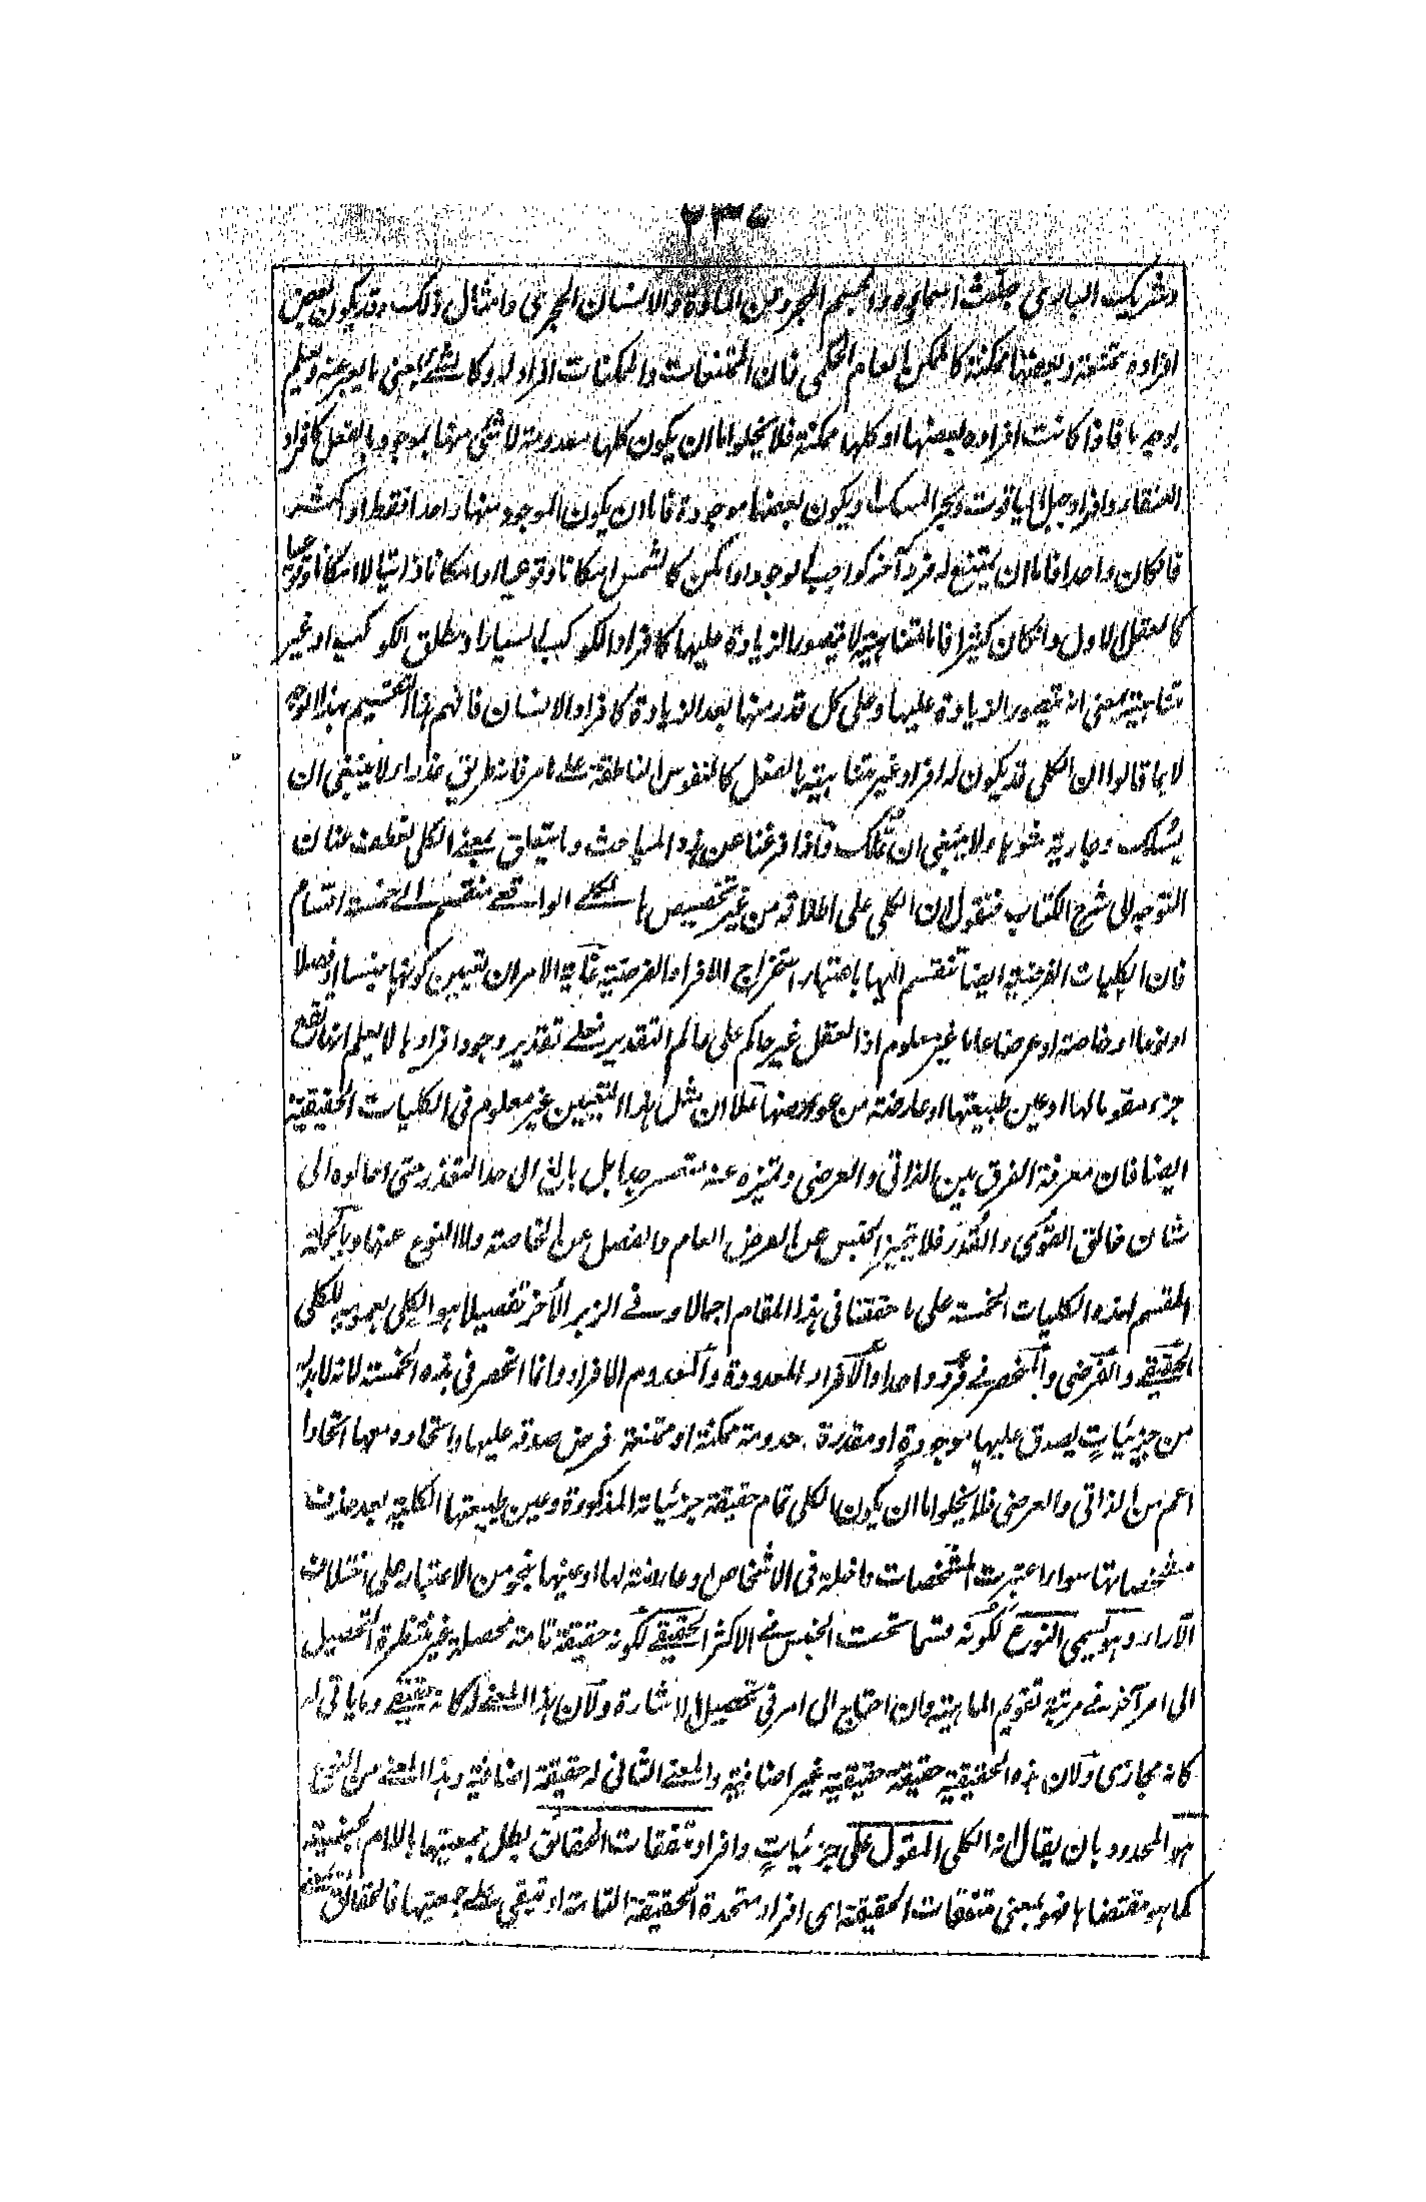 وشريك الباري جلت اسماؤه والجسم المجرد من المادة والانسان الحجري وامثال ذلك وقد يكون بعض
افراده ممتنعة وبعضها ممكنة كالممكن بالعام الحكمي فان الممتنعات والممكنات افراد له وكالشئ بمعنى ما يعبر عنه ويعلم
بوجه ما فاذا كانت افراده بعضها او كلها ممكنة فلا يخلوا اما ان يكون كلها معدومة لا شئ منها بموجود بالفعل كافراد
العنقاء وافراد جبال الياقوت وبحر المسك او يكون بعضها موجودة فاما ان يكون الموجود منها واحدا فقط او اكثر
فان كان واحدا فاما ان يمتنع له فرد آخر كواجب الوجود او امكن كالشمس امكانا وقوعيا او امكانا ذاتيا لا امكانا وقوعيا
كالعقل الاول وان كان كثيرا فاما متناهية لا يتصور الزيادة عليها كافراد الكوكب السيار او مطلق الكوكب او غير
متناهية بمعنى انه يتصور الزيادة عليها وعلى كل قدر منها بعد الزيادة كافراد الانسان فافهم هذا التقسيم بهذا الوجه
لا بما قالوا ان الكلى قد يكون له افراد غير متناهية بالفعل كالنفوس الناطقة على امر فانه طريق عذراء لا ينبغي ان
يسلك وجارية شوهاء ولا ينبغي ان تملك واذا فرغنا عن هذه المباحث وما يتعلق بمعنى الكلى نعطف عنان
التوجه الى شرح الكتاب فنقول لان الكلى على اطلاقه من غير تخصيص بالكلى الواقعي منقسم الى خمسة اقسام
فان الكليات الفرضية ايضا تنقسم اليها باعتبار استخراج الافراد الفرضية غاية الامر ان تعيين كونها جنسا او فصلا
او نوعا او خاصة او عرضا عاما غير معلوم اذ العقل غير حاكم على عالم التقدير فعلى تقدير وجود افرادها لا يعلم انها تقع
جزء مقوما لها او عين طبيعتها او عارضة من عوارضها على ان مثل هذا التعيين غير معلوم في الكليات الحقيقية
ايضا فان معرفة الفرق بين الذاتي والعرضي وتميزه عنه متعسر جدا بل بالغ الى حد التعذر حتى احالوه الى
شان خالق القوى والقدر فلا تميز الجنس عن العرض العام والفصل عن الخاصة ولا النوع عنها وبالجملة
المقسم لهذه الكليات الخمسة على ما حققنا في هذا المقام اجمالا وفي الزبر الأخر تفصيلا هو الكلى بعمومه للكلى
الحقيقي والفرضي والمنحصر في فرد واحد او الافراد المعدودة والمعدوم الافراد وانما انحصر في هذه الخمسة لانه لا بد له
من جزئيات يصدق عليها موجودة او مقدرة معدومة ممكنة او ممتنعة فرض صدقه عليها واتحاده معها اتحادا
اعم من الذاتي والعرضي فلا يخلوا اما ان يكون الكلى تمام حقيقة جزئياته المذكورة وعين طبيعتها الكلية بعد حذف
مشخصاتها سواء اعتبرت المشخصات داخلة في الاشخاص او عارضة لها او عينها بنحو من الاعتبار على اختلاف
الآراء وهو يسمى النوع لكونه قسما تحت الجنس في الاكثر الحقيقي لكونه حقيقة تامة محصلة غير منتظرة التحصيل
الى امر آخر في مرتبة تقويم الماهية وان احتاج الى امر في تحصيل الاشارة ولان هذا المعنى له كانه حقيقي وما ياتي له
كانه مجازى ولان هذه الحقيقية حقيقة حقيقية غير اضافية والمعنى الثاني له حقيقة اضافية وهذا المعنى من النوع
هو المحدود بان يقال انه الكلى المقول على جزئيات وافراد متفقات الحقائق بطل جمعيتها باللام الجنسية
كما هو مقتضاها فهو بمعنى متفقات الحقيقة اى افراد متحدة الحقيقة التامة او تبقي على جمعيتها فالحقائق